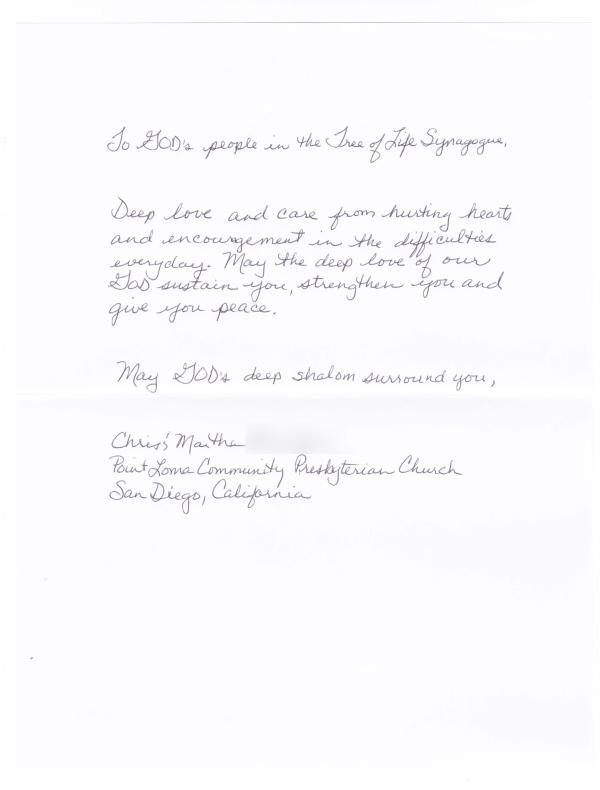 To GOD's people in the Tree of Life Synagogue,
Deep love and care from hurting hearts
and encouragement in the difficulties
everyday. May the deep love of our
GOD sustain you, strengthen you and
give you peace.
May GOD's deep shalom surround you,
Chris & Martha
Point Loma Community Presbyterian Church
San Diego, California